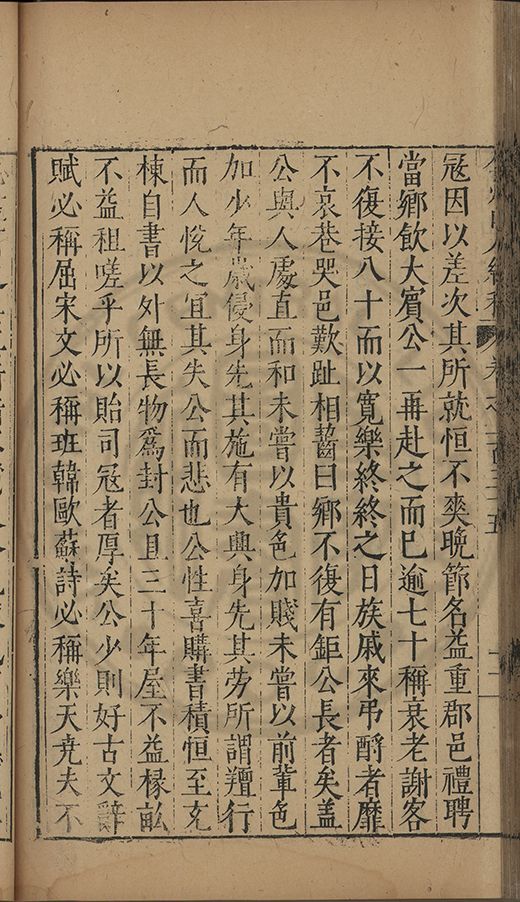 冦因以差次其所就恒不爽晚節名益重郡邑禮聘
當鄉飲大賓公一再赴之而已逾七十稱衰老謝客
不復接八十而以寬樂終終之日族戚來弔酹者靡
不哀巷哭邑歎趾相齧曰鄉不復有鉅公長者矣盖
公與人處直而和未嘗以貴色加賤未嘗以前輩色
加少年歲侵身先其施有大興身先其勞所謂羶行
而人悅之宜其失公而悲也公性喜購書積恒至充
棟自書以外無長物爲封公且三十年屋不益椽畝
不益租嗟乎所以貽司冦者厚矣公少則好古文辭
賦必稱屈宋文必稱班韓歐蘇詩必稱樂天尭夫不